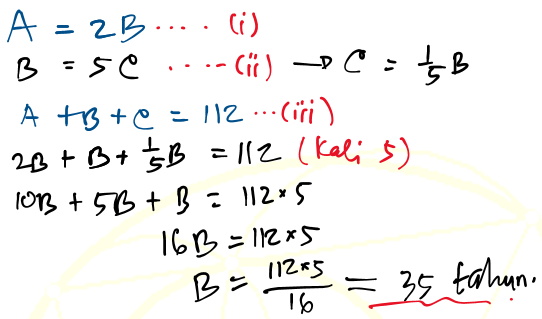 A = 2B .... (i)
B = 5C ....(ii) → C = 1/5 B
A + B + C = 112 ...(iii)
2B + B + 1/5 B = 112 (Kali 5)
10B + 5B + B = 112 × 5
16B = 112 × 5
B = 112 × 5 / 16 = 35 tahun.